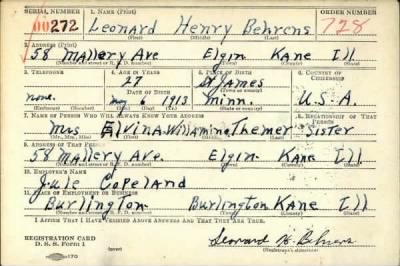 SERIAL NUMBER 1. NAME (Print) ORDER NUMBER
00272 Leonard Henry Behrens 728
(First) (Middle) (Last)
2. ADDRESS (Print)
58 Mallery Ave Elgin Kane Ill
(Number and street or R. F. D. number) (Town) (County) (State)
3. TELEPHONE 4. AGE IN YEARS 5. PLACE OF BIRTH 6. COUNTRY OF CITIZENSHIP
27 St James
DATE OF BIRTH (Town or county)
none. May 6 1913 Minn. U.S.A.
(Exchange) (Number) (Mo.) (Day) (Yr.) (State or country)
7. NAME OF PERSON WHO WILL ALWAYS KNOW YOUR ADDRESS 8. RELATIONSHIP OF THAT PERSON
Mrs Elvina Willamina Themer Sister
(Mr., Mrs., Miss) (First) (Middle) (Last)
9. ADDRESS OF THAT PERSON
58 Mallery Ave. Elgin Kane Ill
(Number and street or R. F. D. number) (Town) (County) (State)
10. EMPLOYER'S NAME
Jule Copeland
11. PLACE OF EMPLOYMENT OR BUSINESS
Burlington Burlington Kane Ill
(Number and street or R. F. D. number) (Town) (County) (State)
I AFFIRM THAT I HAVE VERIFIED ABOVE ANSWERS AND THAT THEY ARE TRUE.
REGISTRATION CARD
D. S. S. Form 1 Leonard H. Behrens
(Registrant's signature)